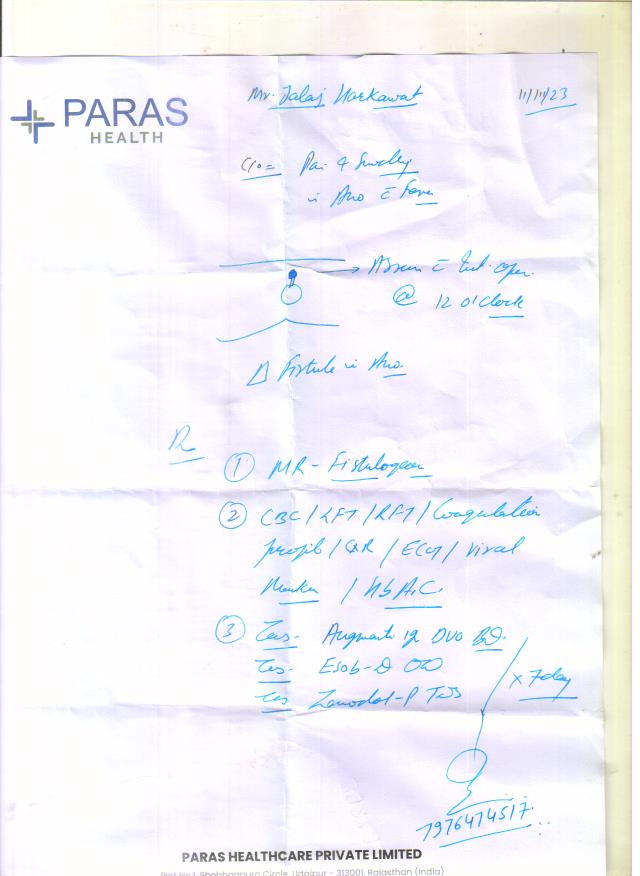 PARAS
HEALTH
Mr. Jalaj Harkawat
11/11/23
C/o = Pain & Swelling
in Ano c̄ Fever
c̄ Ext. open.
@ 12 o'clock
Δ Fistula in Ano.
Rx
① MR - Fistulogram
② CBC / LFT / RFT / Coagulation
profil / CXR / ECG / Viral
Marker / HbA1C
③ Tab. Augmentin 1g DUO BD.
Tab. Esob-D OD
Tab Zerodol-P TDS
x 7 day
7976474517
PARAS HEALTHCARE PRIVATE LIMITED
Plot No.1, Shobhagpura Circle, Udaipur - 313001, Rajasthan (India)